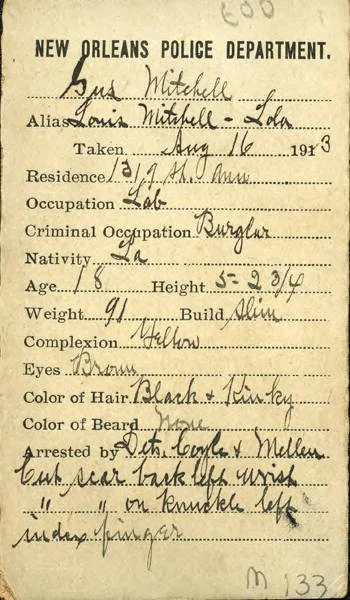 600
NEW ORLEANS POLICE DEPARTMENT.
Gus Mitchell
Alias Louis Mitchell - Lola
Taken Aug 16 1913
Residence 1319 St. Ann
Occupation Lab
Criminal Occupation Burglar
Nativity La
Age 18 Height 5-2 3/4
Weight 91 Build Slim
Complexion Yellow
Eyes Brown
Color of Hair Black & Kinky
Color of Beard None
Arrested by Dets. Coyle & Mellen
Cut scar back left wrist
" " on knuckle left
index finger
M 133